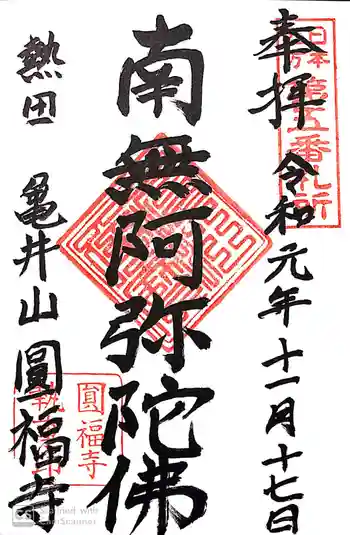 奉拝 令和元年十一月十七日
第五番札所
南無阿弥陀佛
熱田 亀井山 圓福寺
圓福寺
Scanned with
CamScanner